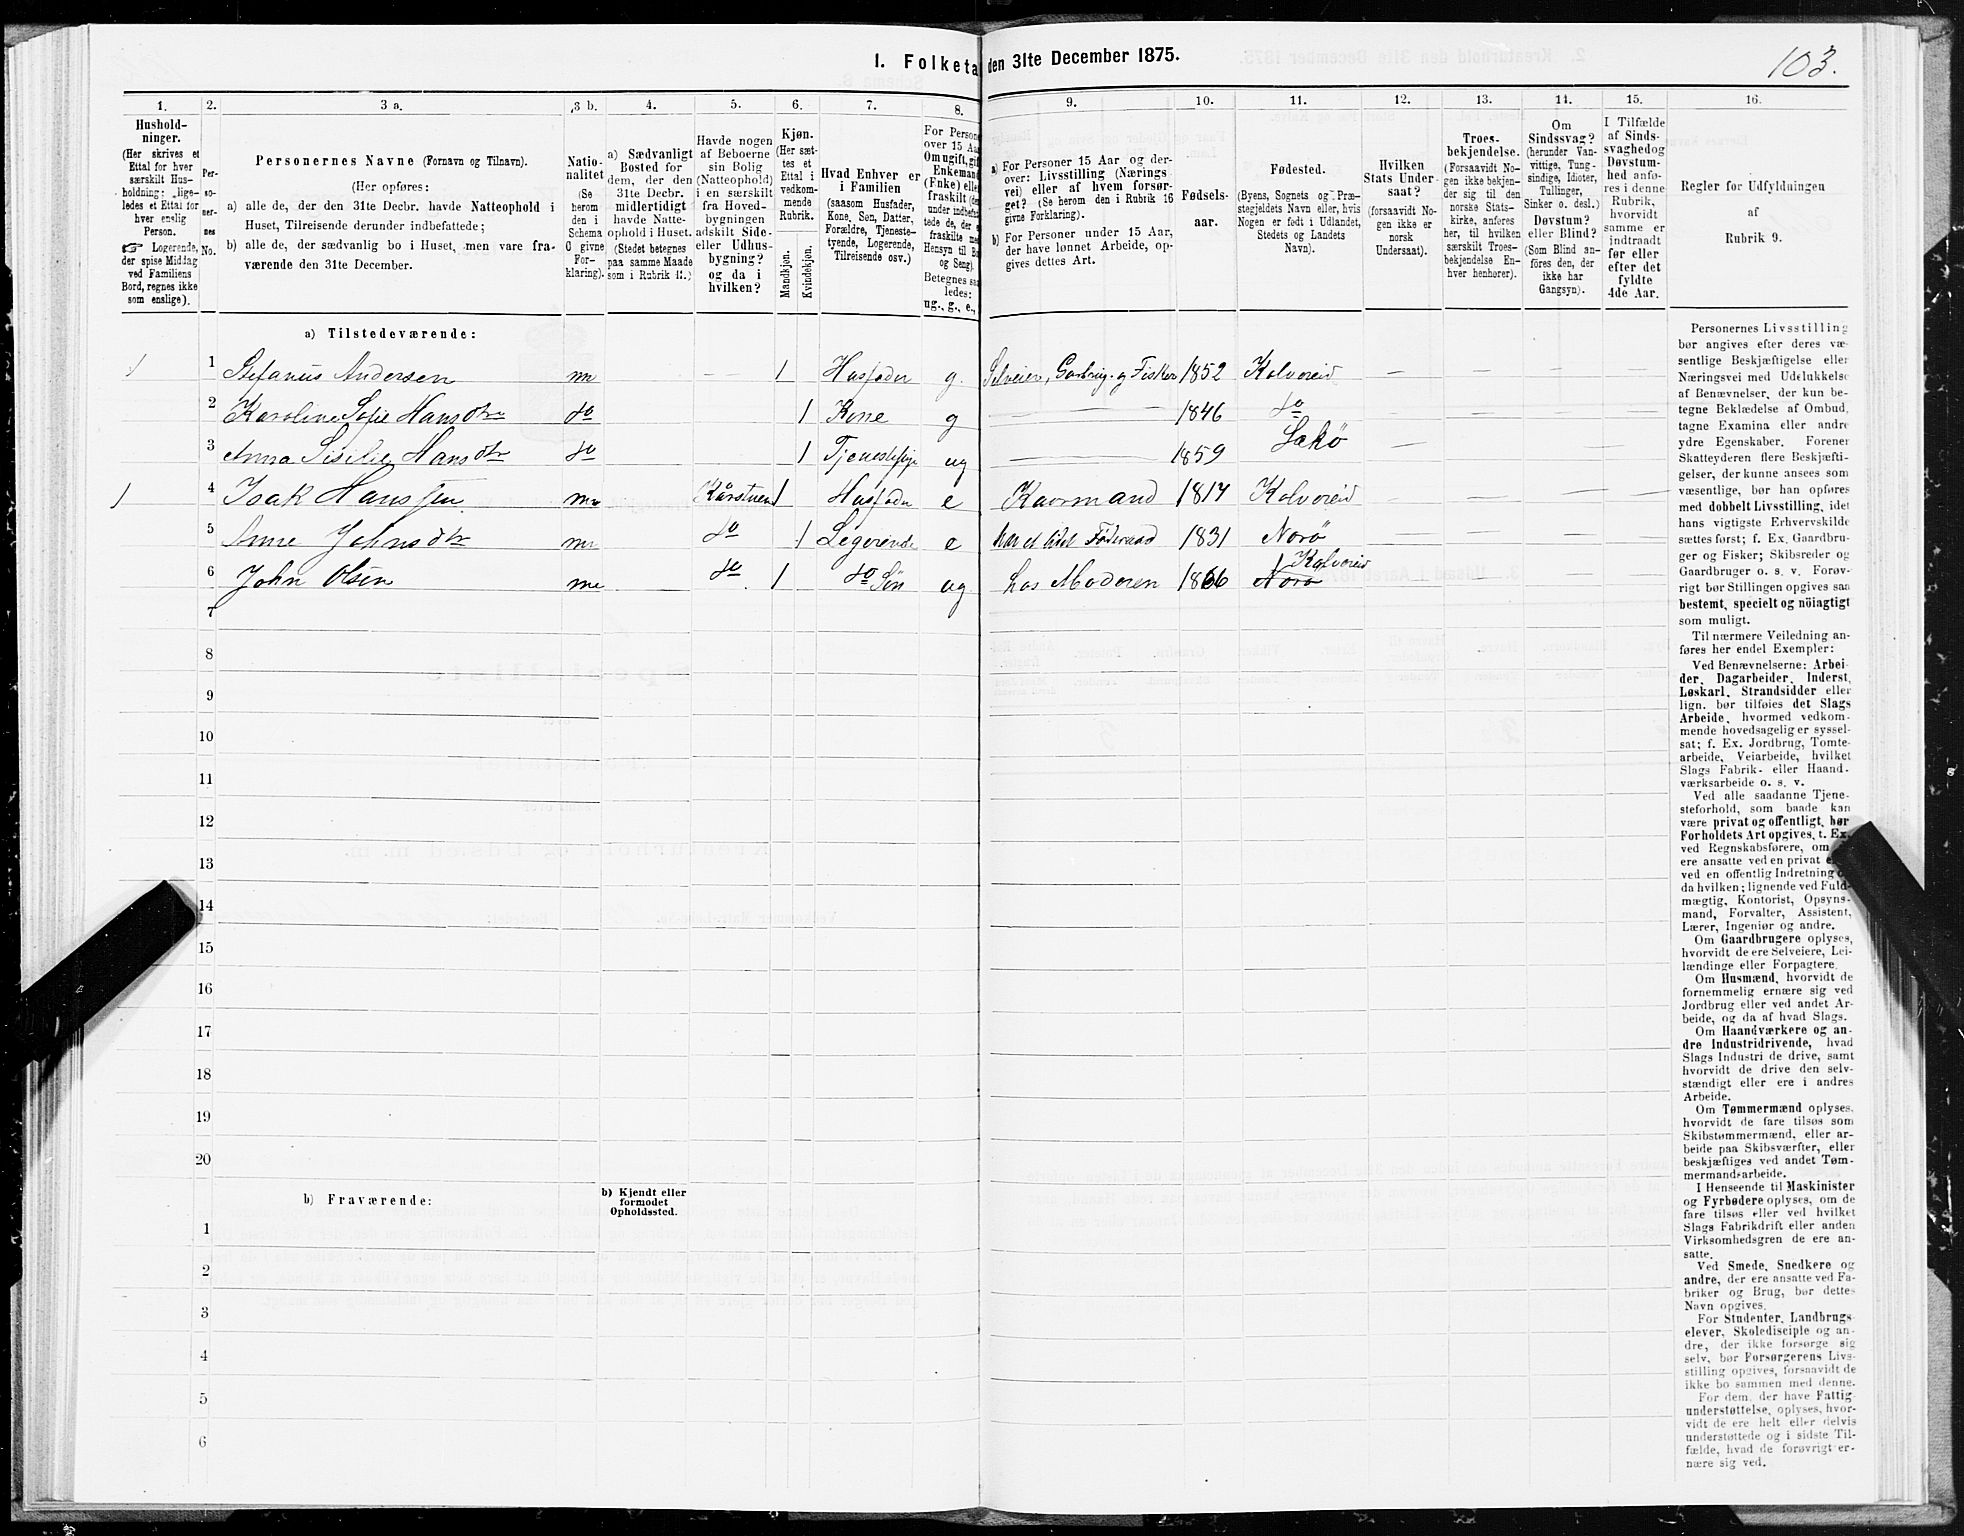 I. Folketa den 31te December 1875.
103.
1.
Hushold-
ninger.
(Her skrives et
Ettal for hver
særskilt Hus-
holdning; lige-
ledes et Ettal for
hver enslig
Person.
☞ Logerende,
der spise Middag
ved Familiens
Bord, regnes ikke
som enslige).
2.
Per-
so-
ner-
nes
No.
3 a.
Personernes Navne (Fornavn og Tilnavn).
(Her opføres:
a) alle de, der den 31te Decbr. havde Natteophold i
Huset, Tilreisende derunder indbefattede;
b) alle de, der sædvanlig bo i Huset, men vare fra-
værende den 31te December.
3 b.
Natio-
nalitet
(Se
herom
den i
Schema
O givne
For-
klaring).
4.
a) Sædvanligt
Bosted for
dem, der den
31te Decbr.
midlertidigt
havde Natte-
ophold i Huset.
(Stedet betegnes
paa samme Maade
som i Rubrik 11.)
5.
Havde nogen
af Beboerne
sin Bolig
(Natteophold)
i en særskilt
fra Hoved-
bygningen
adskilt Side-
eller Udhus-
bygning?
og da i
hvilken?
6.
Kjøn.
(Her sæt-
tes et
Ettal i
vedkom-
mende
Rubrik.
Mandkjøn.
Kvindekjøn.
7.
Hvad Enhver er
i Familien
(saasom Husfader,
Kone, Søn, Datter,
Forældre, Tjeneste-
tyende, Logerende,
Tilreisende osv.)
8.
For Persone
over 15 Aa
Om ugift, gif
Enkemand
(Enke) elle
fraskilt (de
under indbefa
tede de, der e
fraskilte me
Hensyn til Bo
og Seng).
Betegnes saa
ledes:
ug., g., e.,
9.
a) For Personer 15 Aar og der-
over: Livsstilling (Nærings-
vei) eller af hvem forsør-
get? (Se herom den i Rubrik 16
givne Forklaring).
b) For Personer under 15 Aar,
der have lønnet Arbeide, op-
gives dettes Art.
10.
Fødsels-
aar.
11.
Fødested.
(Byens, Sognets og Præ-
stegjeldets Navn eller, hvis
Nogen er født i Udlandet,
Stedets og Landets
Navn).
12.
Hvilken
Stats Under
saat?
(forsaavidt No-
gen ikke er
norsk
Undersaat).
13.
Troes-
bekjendelse.
(Forsaavidt No-
gen ikke bekjen-
der sig til den
norske Stats-
kirke, anføres
her, til hvilken
særskilt Troes-
bekjendelse En-
hver henhører).
14.
Om
Sindssvag?
(herunder Van-
vittige, Tung-
sindige, Idioter,
Tullinger,
Sinker o. desl.)
Døvstum?
eller Blind?
(Som Blind an-
føres den, der
ikke har
Gangsyn).
15.
I Tilfælde
af Sinds-
svaghed og
Døvstum-
hed anfø-
res i denne
Rubrik,
hvorvidt
samme er
indtraadt
før eller
efter det
fyldte
4de Aar.
16.
Regler for Udfyldningen
af
Rubrik 9.
a) Tilstedeværende:
1 1 Stefanus Andersen nn — — 1 Husfader g. Selveier, Gaarbrug. og Fisker 1852 Kolvereid — — — —
2 Karoline Sofie Hansdtr do 1 Kone g — 1846 do — — —
3 Anna Sisilie Hansdtr do 1 ug — 1859 Lekø — —
1 4 Isak Hanssen nn Kårstuen 1 Husfader e Kaarmand 1817 Kolvereid — — — —
5 Anne Johnsdtr nn do 1 Logerende e har et lidet Føderaad 1831 Norø — — —
6 John Olsen nn do 1 do Søn ug. hos Moderen 1866 Norø Kolvereid
7
8
9
10
11
12
13
14
15
16
17
18
19
20
b) Fraværende:
b) Kjendt eller
formodet
Opholdssted.
1
2
3
4
5
6
Personernes Livsstilling
bør angives efter deres væ-
sentlige Beskjæftigelse eller
Næringsvei med Udelukkelse
af Benævnelser, der kun be-
tegne Beklædelse af Ombud,
tagne Examina eller andre
ydre Egenskaber. Forener
Skatteyderen flere Beskjæfti-
gelser, der kunne ansees som
væsentlige, bør han opføres
med dobbelt Livsstilling, idet
hans vigtigste Erhvervskilde
sættes først; f. Ex. Gaardbru-
ger og Fisker; Skibsreder og
Gaardbruger o. s. v. Forøv-
rigt bør Stillingen opgives saa
bestemt, specielt og nöiagtigt
som muligt.
Til nærmere Veiledning an-
føres her endel Exempler:
Ved Benævnelserne: Arbei-
der, Dagarbeider, Inderst,
Løskarl, Strandsidder eller
lign. bør tilføies det Slags
Arbeide, hvormed vedkom-
mende hovedsagelig er syssel-
sat; f. Ex. Jordbrug, Tomte-
arbeide, Veiarbeide, hvilket
Slags Fabrik- eller Haand-
værksarbeide o. s. v.
Ved alle saadanne Tjene-
steforhold, som baade kan
være privat og offentligt, bør
Forholdets Art opgives, t. Ex.
ved Regnskabsførere, om
ere ansatte ved en privat e
ved en offentlig Indretning
da hvilken; lignende ved Fuld-
mægtig, Kontorist, Opsyns-
mand, Forvalter, Assistent,
Lærer, Ingeniør og andre.
Om Gaardbrugere oplyses,
hvorvidt de ere Selveiere, Lei-
lændinge eller Forpagtere.
Om Husmænd, hvorvidt de
fornemmelig ernære sig ved
Jordbrug eller ved andet Ar-
beide, og da af hvad Slags.
Om Haandværkere og an-
dre Industridrivende, hvad
Slags Industri de drive, samt
hvorvidt de drive den selv-
stændigt eller ere i andres
Arbeide.
Om Tømmermænd oplyses,
hvorvidt de fare tilsøs som
Skibstømmermænd, eller ar-
beide paa Skibsværfter, eller
beskjæftiges ved andet Tøm-
mermandsarbeide.
I Henseende til Maskinister
og Fyrbødere oplyses, om de
fare tilsøs eller ved hvilket
Slags Fabrikdrift eller anden
Virksomhedsgren de ere an-
satte.
Ved Smede, Snedkere og
andre, der ere ansatte ved Fa-
briker og Brug, bør dettes
Navn opgives.
For Studenter, Landbrugs-
elever, Skoledisciple og an-
dre, der ikke forsørge sig
selv, bør Forsørgerens Livs-
stilling opgives, forsaavidt de
ikke bo sammen med denne.
For dem, der have Fattig-
understøttelse, oplyses, hvor-
vidt de ere helt eller delvis
understøttede og i sidste Til-
fælde, hvad de forøvrigt er-
nære sig ved.